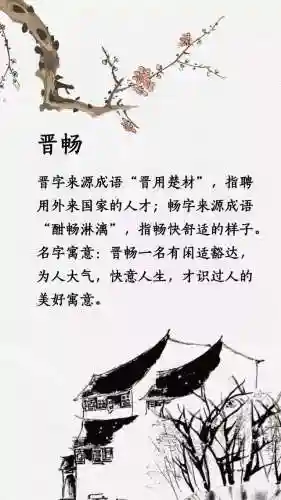 晋畅
晋字来源成语“晋用楚材”，指聘
用外来国家的人才；畅字来源成语
“酣畅淋漓”，指畅快舒适的样子。
名字寓意：晋畅一名有闲适豁达，
为人大气，快意人生，才识过人的
美好寓意。